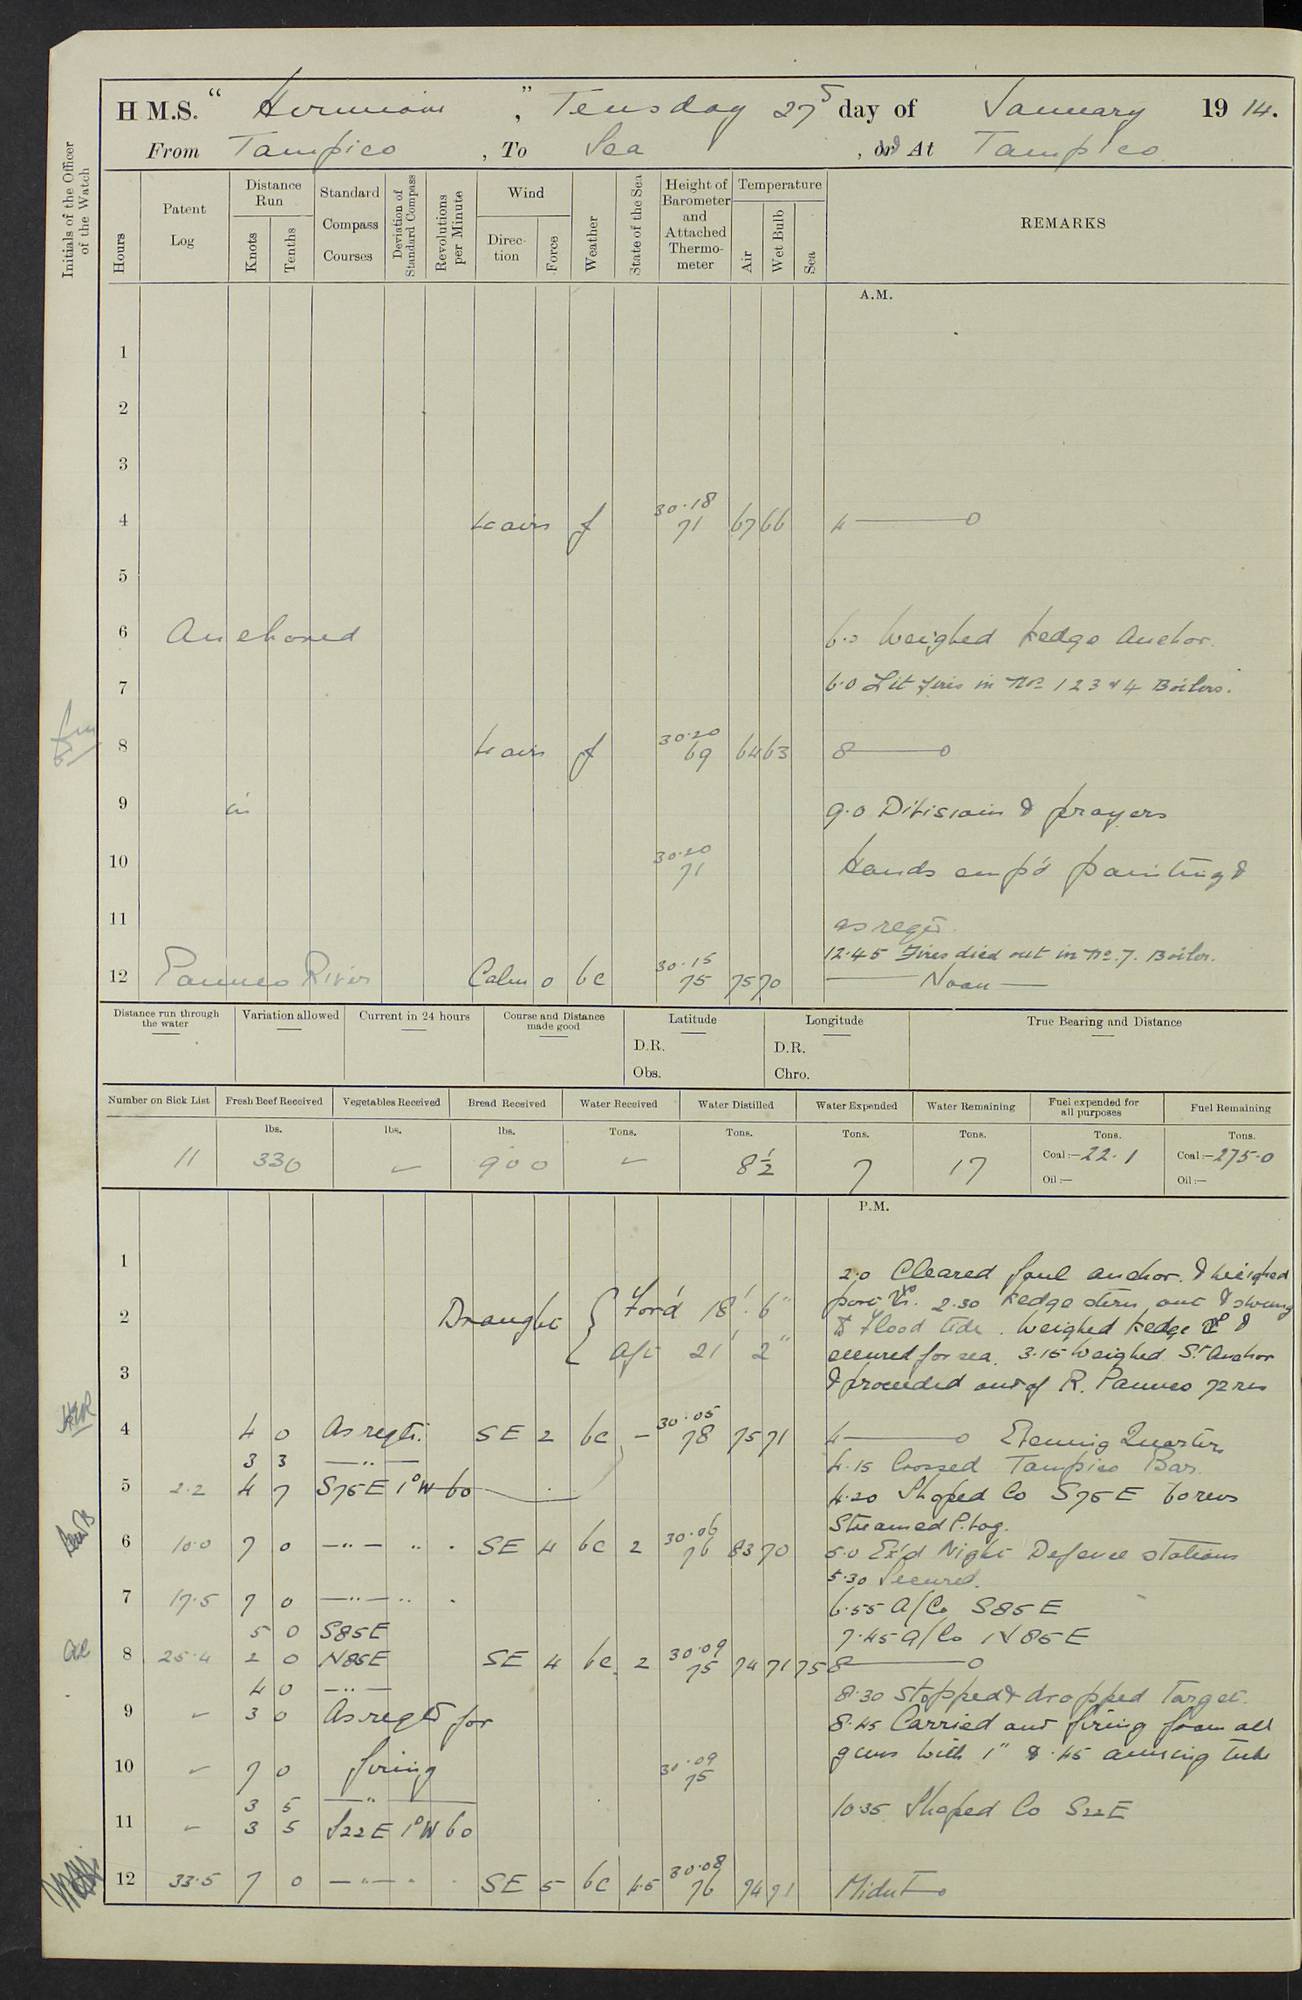 H.M.S. " Hermione ", Teusday 27th day of January 1914.
From Tampico, To Sea, or At Tampico
Initials of the Officer of the Watch
Hours
Patent Log
Distance Run
Knots
Tenths
Standard Compass Courses
Deviation of Standard Compass
Revolutions per Minute
Wind
Direction
Force
Weather
State of the Sea
Height of Barometer and Attached Thermometer
Temperature
Air
Wet Bulb
Sea
REMARKS
A.M.
1
2
3
4 Lt airs f 30.18 71 67 66 4 ——— 0
5
6 Anchored 6.0 Weighed kedge Anchor.
7 6.0 Lit fires in Nos 1 2 3 & 4 Boilers.
8 Lt airs f 30.20 69 64 63 8 ——— 0
9 in 9.0 Divisions & prayers
10 30.20 71 Hands emp'd painting &
11 as reqd.
12.45 Fires died out in No. 7. Boiler.
12 Panuco River Calm 0 bc 30.15 75 75 70 —— Noon ——
Distance run through the water
Variation allowed
Current in 24 hours
Course and Distance made good
Latitude
D.R.
Obs.
Longitude
D.R.
Chro.
True Bearing and Distance
Number on Sick List
Fresh Beef Received
Vegetables Received
Bread Received
Water Received
Water Distilled
Water Expended
Water Remaining
Fuel expended for all purposes
Fuel Remaining
lbs. lbs. lbs. Tons. Tons. Tons. Tons. Tons. Tons.
11 330 ✓ 900 ✓ 8½ 7 17 Coal:—22.1 Coal:—275.0
Oil:— Oil:—
P.M.
1
2.0 Cleared foul anchor. & weighed
2 Draught { For'd 18' 6" port 2.30 kedge stern out & swung
to flood tide. Weighed kedge &
Aft 21' 2" secured for sea. 3.15 Weighed St Anchor
3 & proceeded out of R. Panuco 72 revs
4 4 0 As reqte. SE 2 bc - 30.05 78 75 71 4 ——— 0 Evening Quarters
3 3 —"— 4.15 Crossed Tampico Bar.
5 2.2 4 7 S75E 1°W 60 4.20 Shaped Co S75E 60 revs
Streamed P. Log.
6 10.0 7 0 —"— " . SE 4 bc 2 30.06 76 83 70 5.0 Ex'd Night Defence stations
5.30 Secured.
7 17.5 7 0 —"— " . 6.55 A/Co S85E
5 0 S85E 7.45 A/Co N85E
8 25.4 2 0 N85E SE 4 bc 2 30.09 75 74 71 75 8 ——— 0
4 0 —"— 8.30 Stopped & dropped target.
9 ✓ 3 0 As reqd for 8.45 Carried out firing from all
guns with 1" & .45 aiming tube
10 ✓ 7 0 firing 30.09 75
3 5 —"— 10.35 Shaped Co S22E
11 ✓ 3 5 S22E 1°W 60
12 33.5 7 0 —"— " . SE 5 bc 4.5 30.08 76 74 71 Midnt ——0